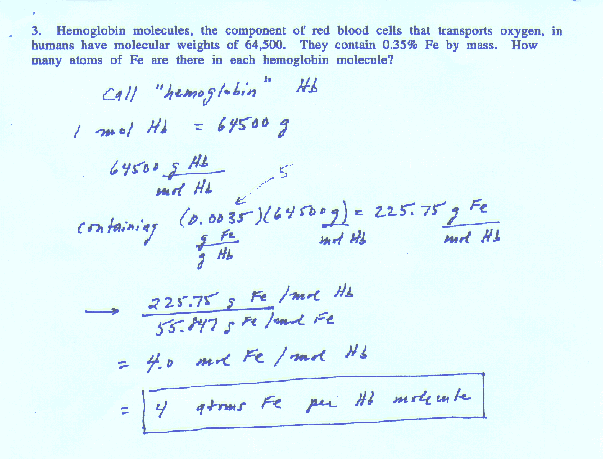 3. Hemoglobin molecules, the component of red blood cells that transports oxygen, in
humans have molecular weights of 64,500. They contain 0.35% Fe by mass. How
many atoms of Fe are there in each hemoglobin molecule?
Call "hemoglobin" Hb
1 mol Hb = 64500 g
64500 g Hb
mol Hb
5
containing (0.0035)(64500g) = 225.75 g Fe
g Fe mol Hb mol Hb
g Hb
→ 225.75 g Fe /mol Hb
55.847 g Fe /mol Fe
= 4.0 mol Fe / mol Hb
= 4 atoms Fe per Hb molecule